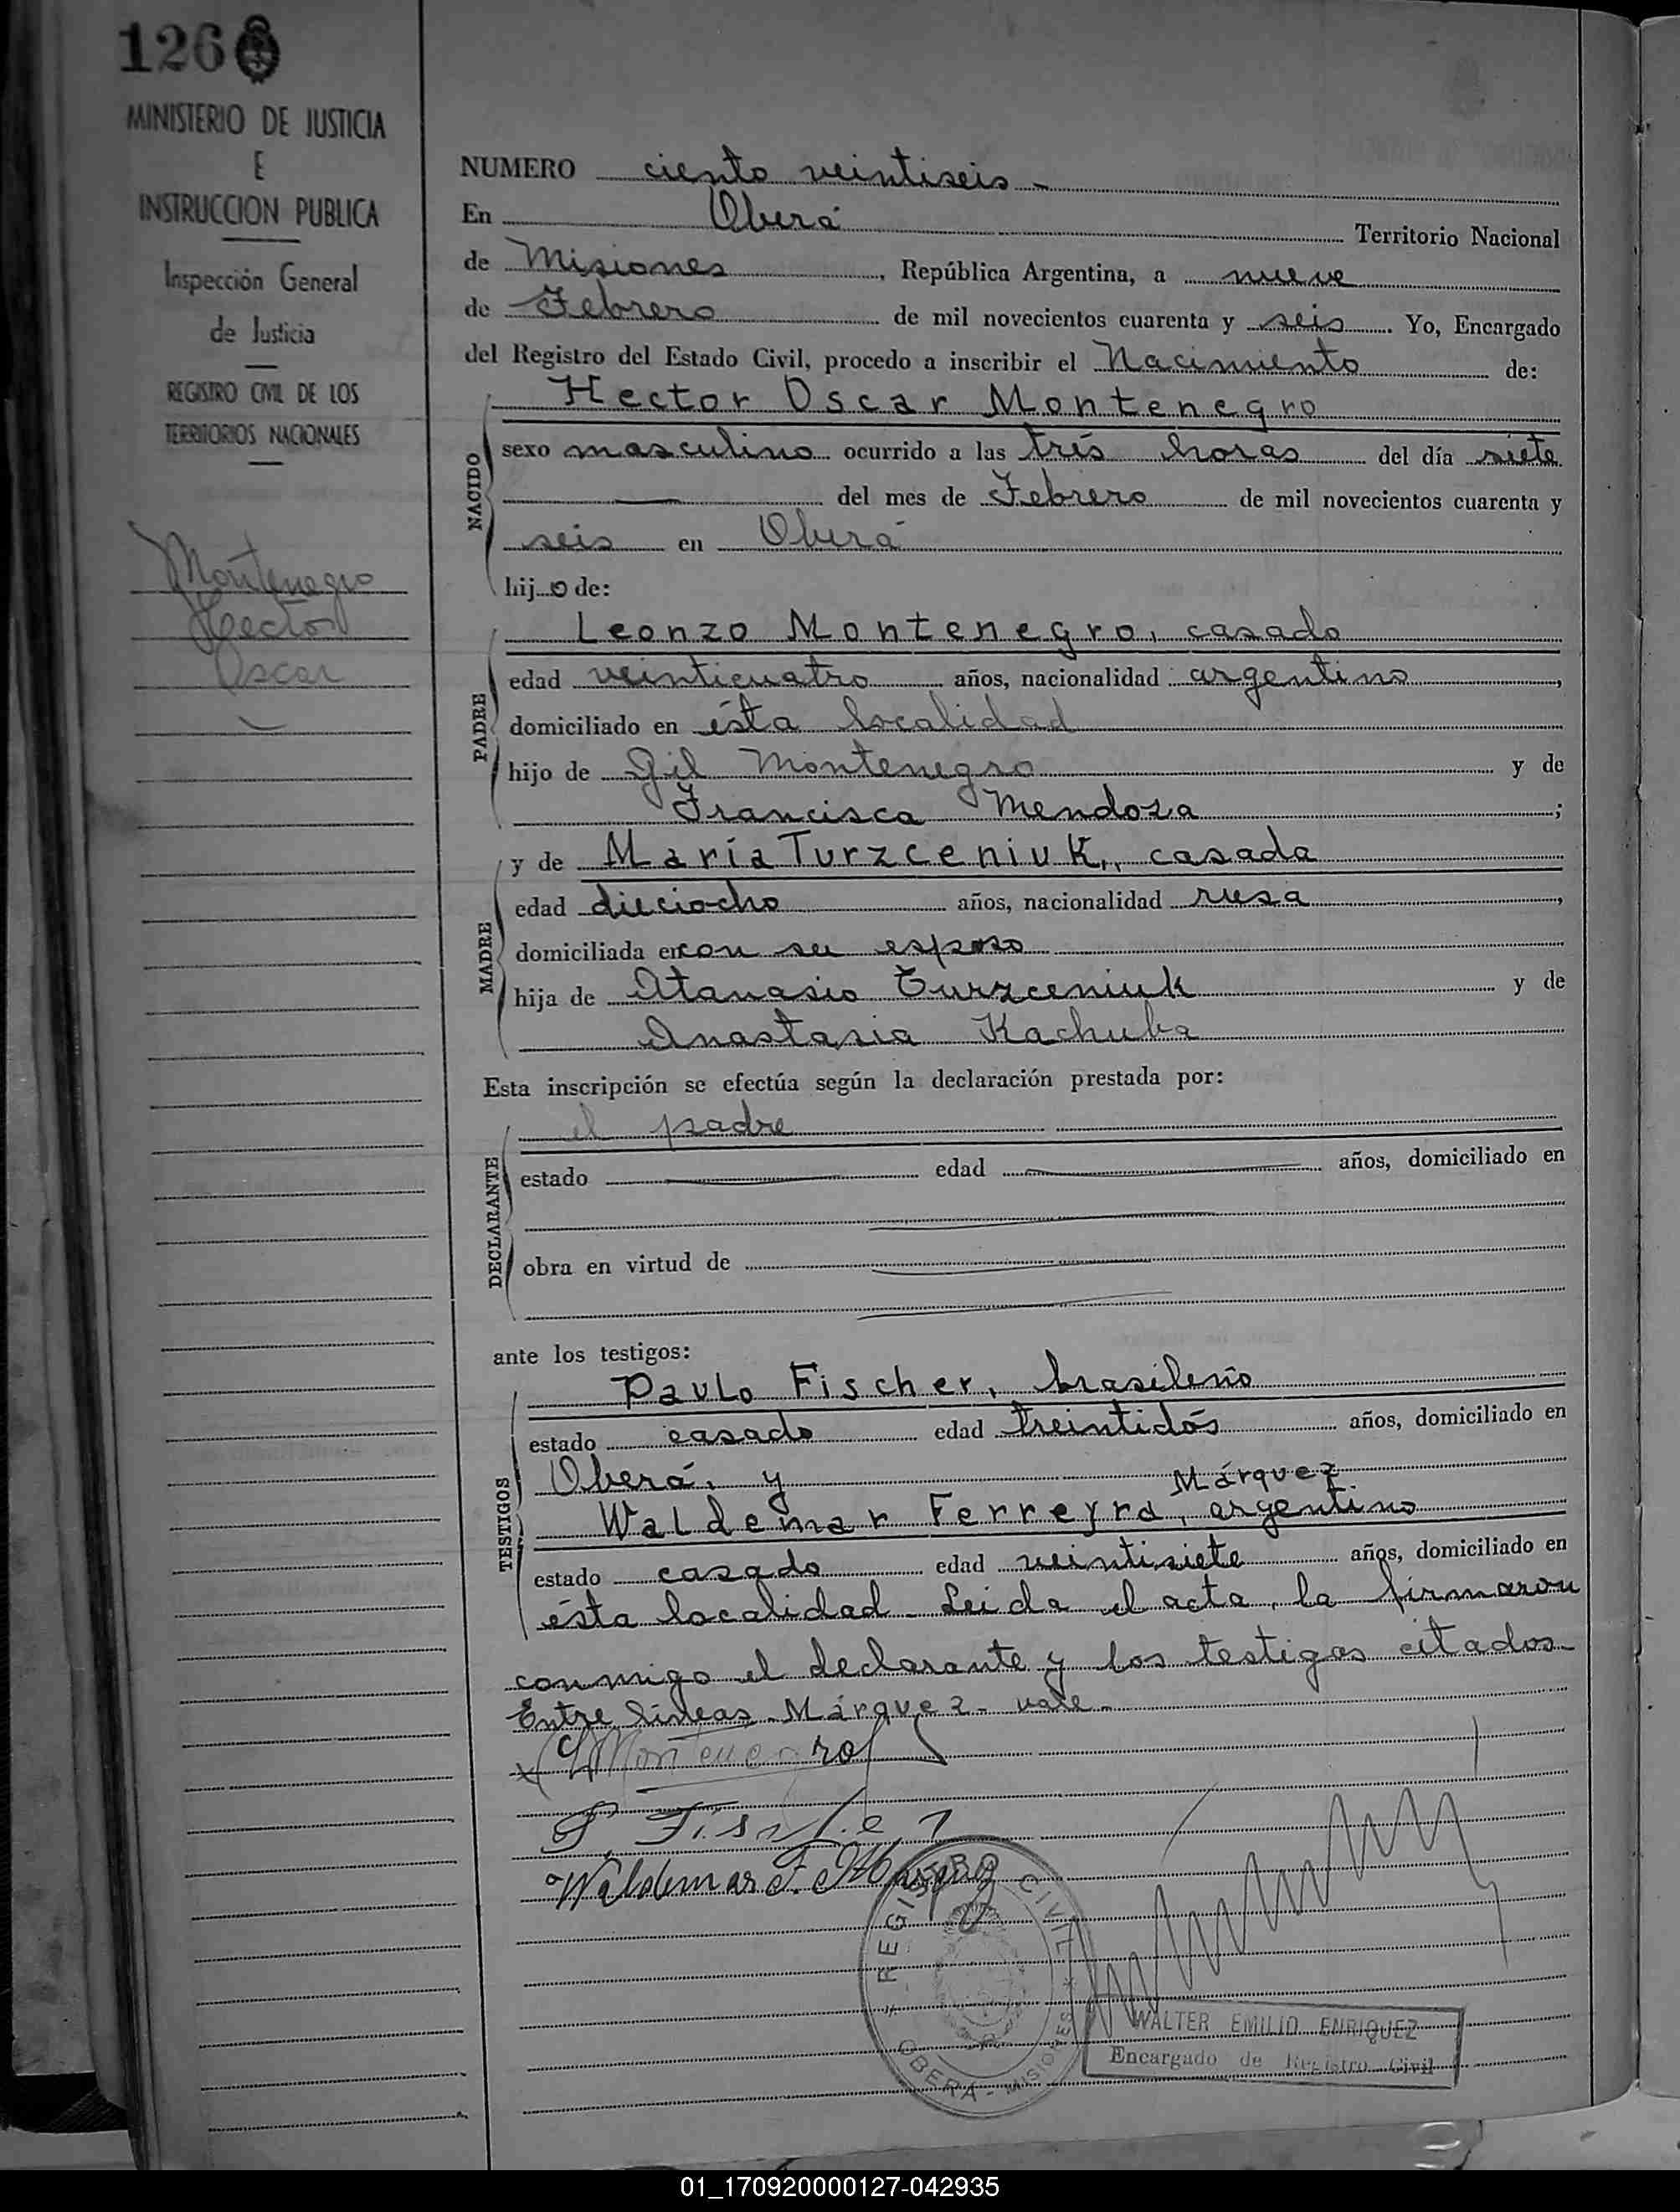 126
MINISTERIO DE JUSTICIA
E
INSTRUCCION PUBLICA
Inspección General
de Justicia
REGISTRO CIVIL DE LOS
TERRITORIOS NACIONALES
Montenegro
Hector
Oscar
NUMERO ciento veintiseis -
En Oberá Territorio Nacional
de Misiones, República Argentina, a nueve
de Febrero de mil novecientos cuarenta y seis. Yo, Encargado
del Registro del Estado Civil, procedo a inscribir el Nacimiento de:
NACIDO
Hector Oscar Montenegro
sexo masculino ocurrido a las trés horas del día siete
— del mes de Febrero de mil novecientos cuarenta y
seis en Oberá
hijo de:
PADRE
Leonzo Montenegro, casado
edad veinticuatro años, nacionalidad argentino,
domiciliado en ésta localidad
hijo de Gil Montenegro y de
Francisca Mendoza;
MADRE
y de María Turzceniuk, casada
edad dieciocho años, nacionalidad rusa,
domiciliada en con su esposo
hija de Atanasio Turzceniuk y de
Anastasia Kachuba
Esta inscripción se efectúa según la declaración prestada por:
DECLARANTE
el padre
estado — edad — años, domiciliado en
obra en virtud de —
ante los testigos:
TESTIGOS
Paulo Fischer, brasileño
estado casado edad treintidós años, domiciliado en
Oberá, y
Márquez
Waldemar Ferreyra, argentino
estado casado edad veintisiete años, domiciliado en
ésta localidad. Leida el acta, la firmaron
conmigo el declarante y los testigos citados-
Entre lineas. Márquez- vale-
L Montenegro
P. Fischer
Waldemar F. Marquez
REGISTRO CIVIL
OBERA - MISIONES
WALTER EMILIO ENRIQUEZ
Encargado de Registro Civil
01_170920000127-042935